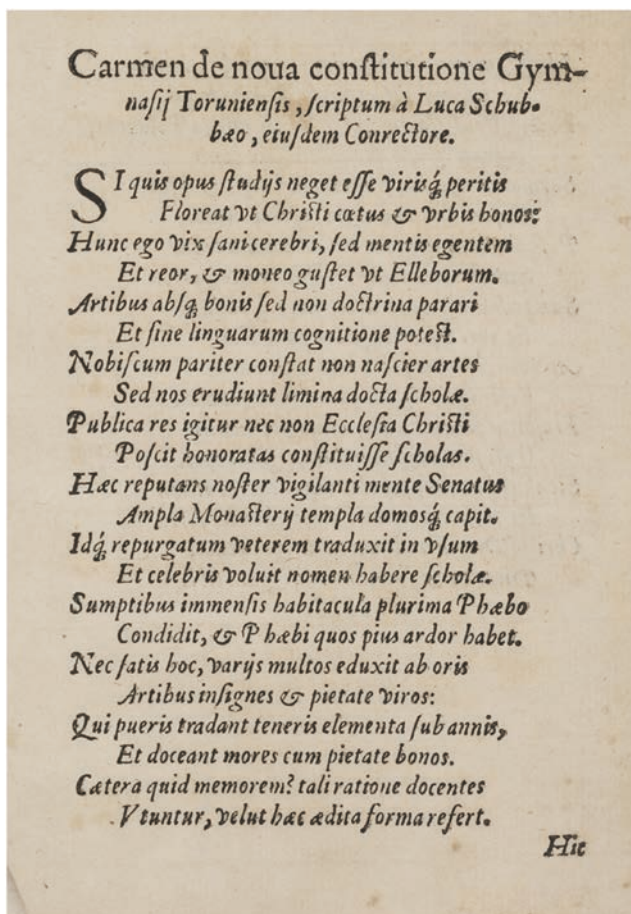 Carmen de noua conſtitutione Gym-
naſij Torunienſis, ſcriptum à Luca Schub-
bæo, eiuſdem Conrectore.
SI quis opus ſtudijs neget eſſe virisq́; peritis
Floreat vt Chriſti cœtus & vrbis honos:
Hunc ego vix ſani cerebri, ſed mentis egentem
Et reor, & moneo guſtet vt Elleborum.
Artibus abſq; bonis ſed non doctrina parari
Et ſine linguarum cognitione poteſt.
Nobiſcum pariter conſtat non naſcier artes
Sed nos erudiunt limina docta ſcholæ.
Publica res igitur nec non Eccleſia Chriſti
Poſcit honoratas conſtituiſſe ſcholas.
Hæc reputans noſter vigilanti mente Senatus
Ampla Monaſterij templa domosq́; capit.
Idq́; repurgatum veterem traduxit in vſum
Et celebris voluit nomen habere ſcholæ.
Sumptibus immenſis habitacula plurima Phæbo
Condidit, & Phæbi quos pius ardor habet.
Nec ſatis hoc, varijs multos eduxit ab oris
Artibus inſignes & pietate viros:
Qui pueris tradant teneris elementa ſub annis,
Et doceant mores cum pietate bonos.
Cætera quid memorem? tali ratione docentes
Vtuntur, velut hæc ædita forma refert.
Hic